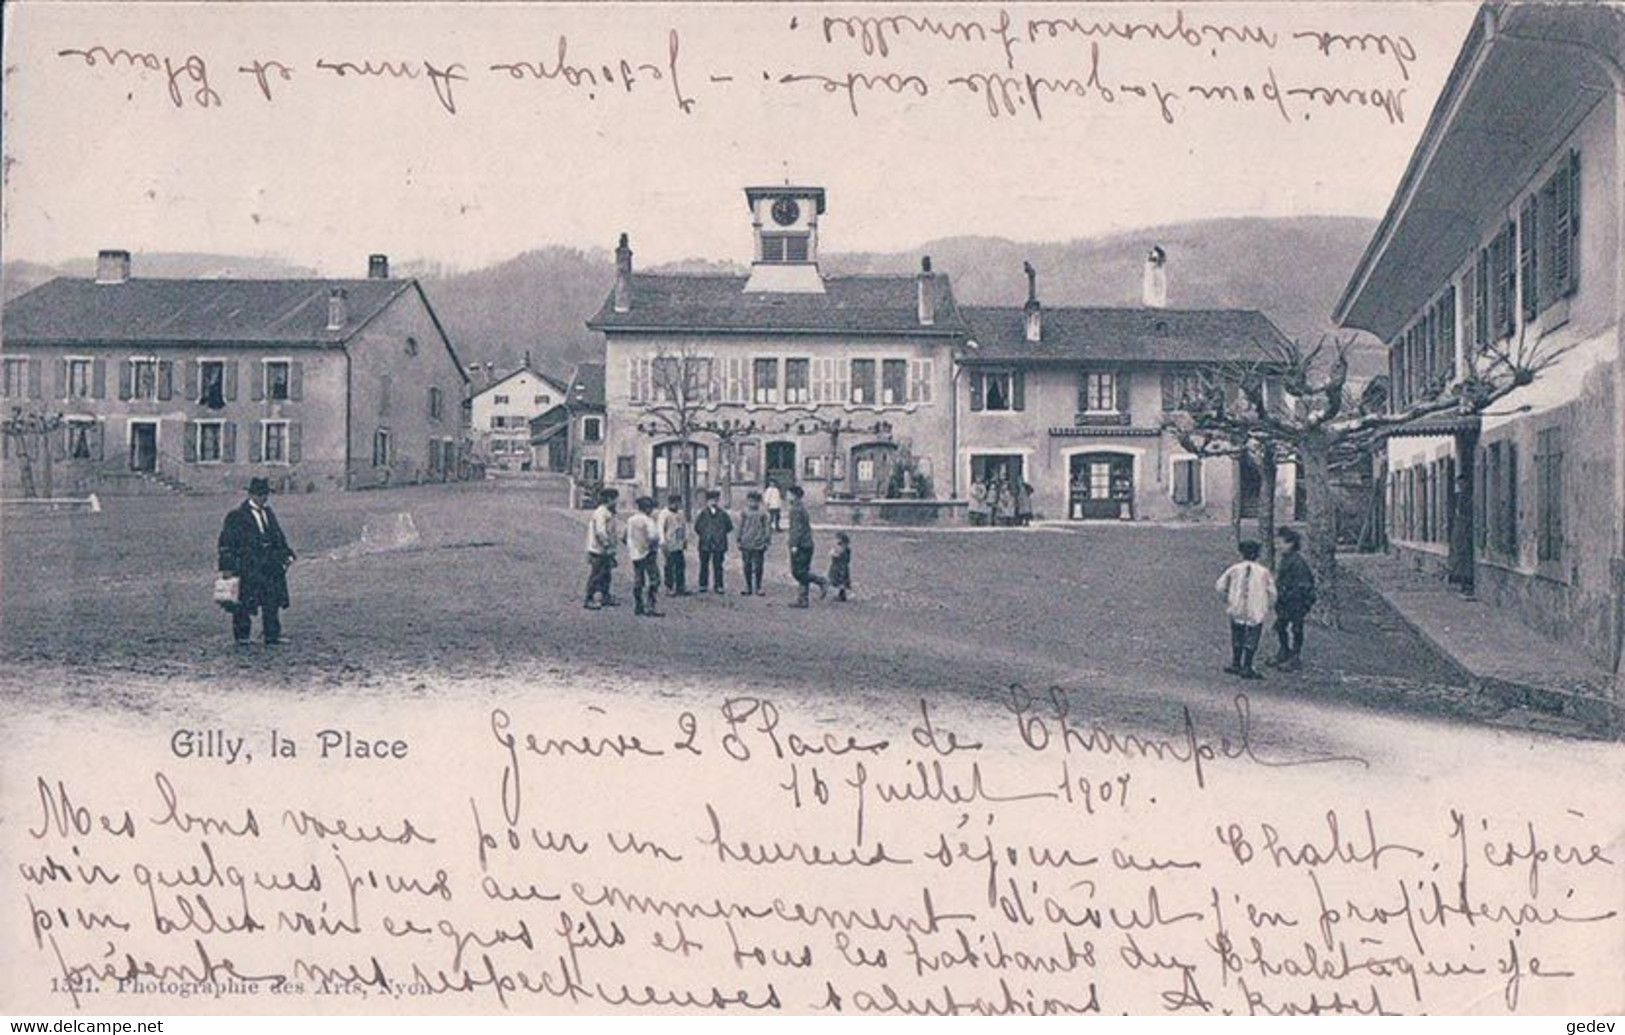 Merci pour la gentille carte. - Je soigne Anna et Claire
deux mignonnes jumelles.
Gilly, la Place
Genève 2 Place de Champel
16 Juillet 1907.
Mes bons voeux pour un heureux séjour au Chalet. J'espère
avoir quelques jours au commencement d'août j'en profitterai
pour aller voir ce gros fils et tous les habitants du Chalet à qui je
présente mes respectueuses salutations. A. Rosset
1521. Photographie des Arts, Nyon
www.delcampe.net
gedev